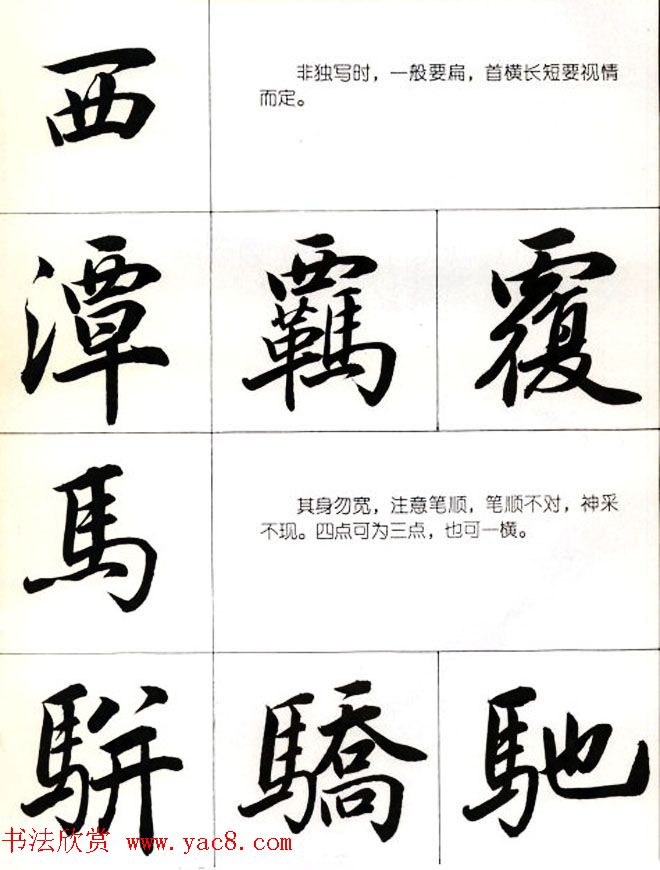 西
非独写时，一般要扁，首横长短要视情
而定。
潭 羈 覆
馬
其身勿宽，注意笔顺，笔顺不对，神采
不现。四点可为三点，也可一横。
駢 驕 馳
书法欣赏 www.yac8.com